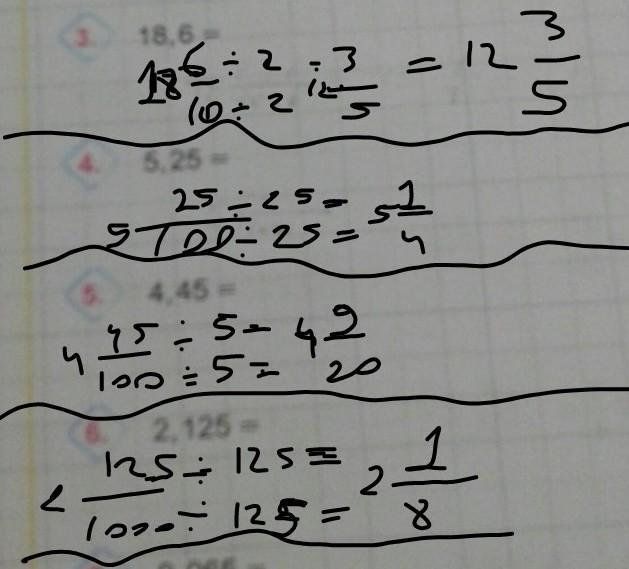 3. 18,6 =
18 6/10 ÷ 2 ÷ 2 12 3/5 = 12 3/5
4. 5,25 =
5 25/100 ÷ 25 = ÷ 25 = 5 1/4
5. 4,45 =
4 45/100 ÷ 5 = ÷ 5 = 4 9/20
6. 2,125 =
2 125/1000 ÷ 125 = ÷ 125 = 2 1/8